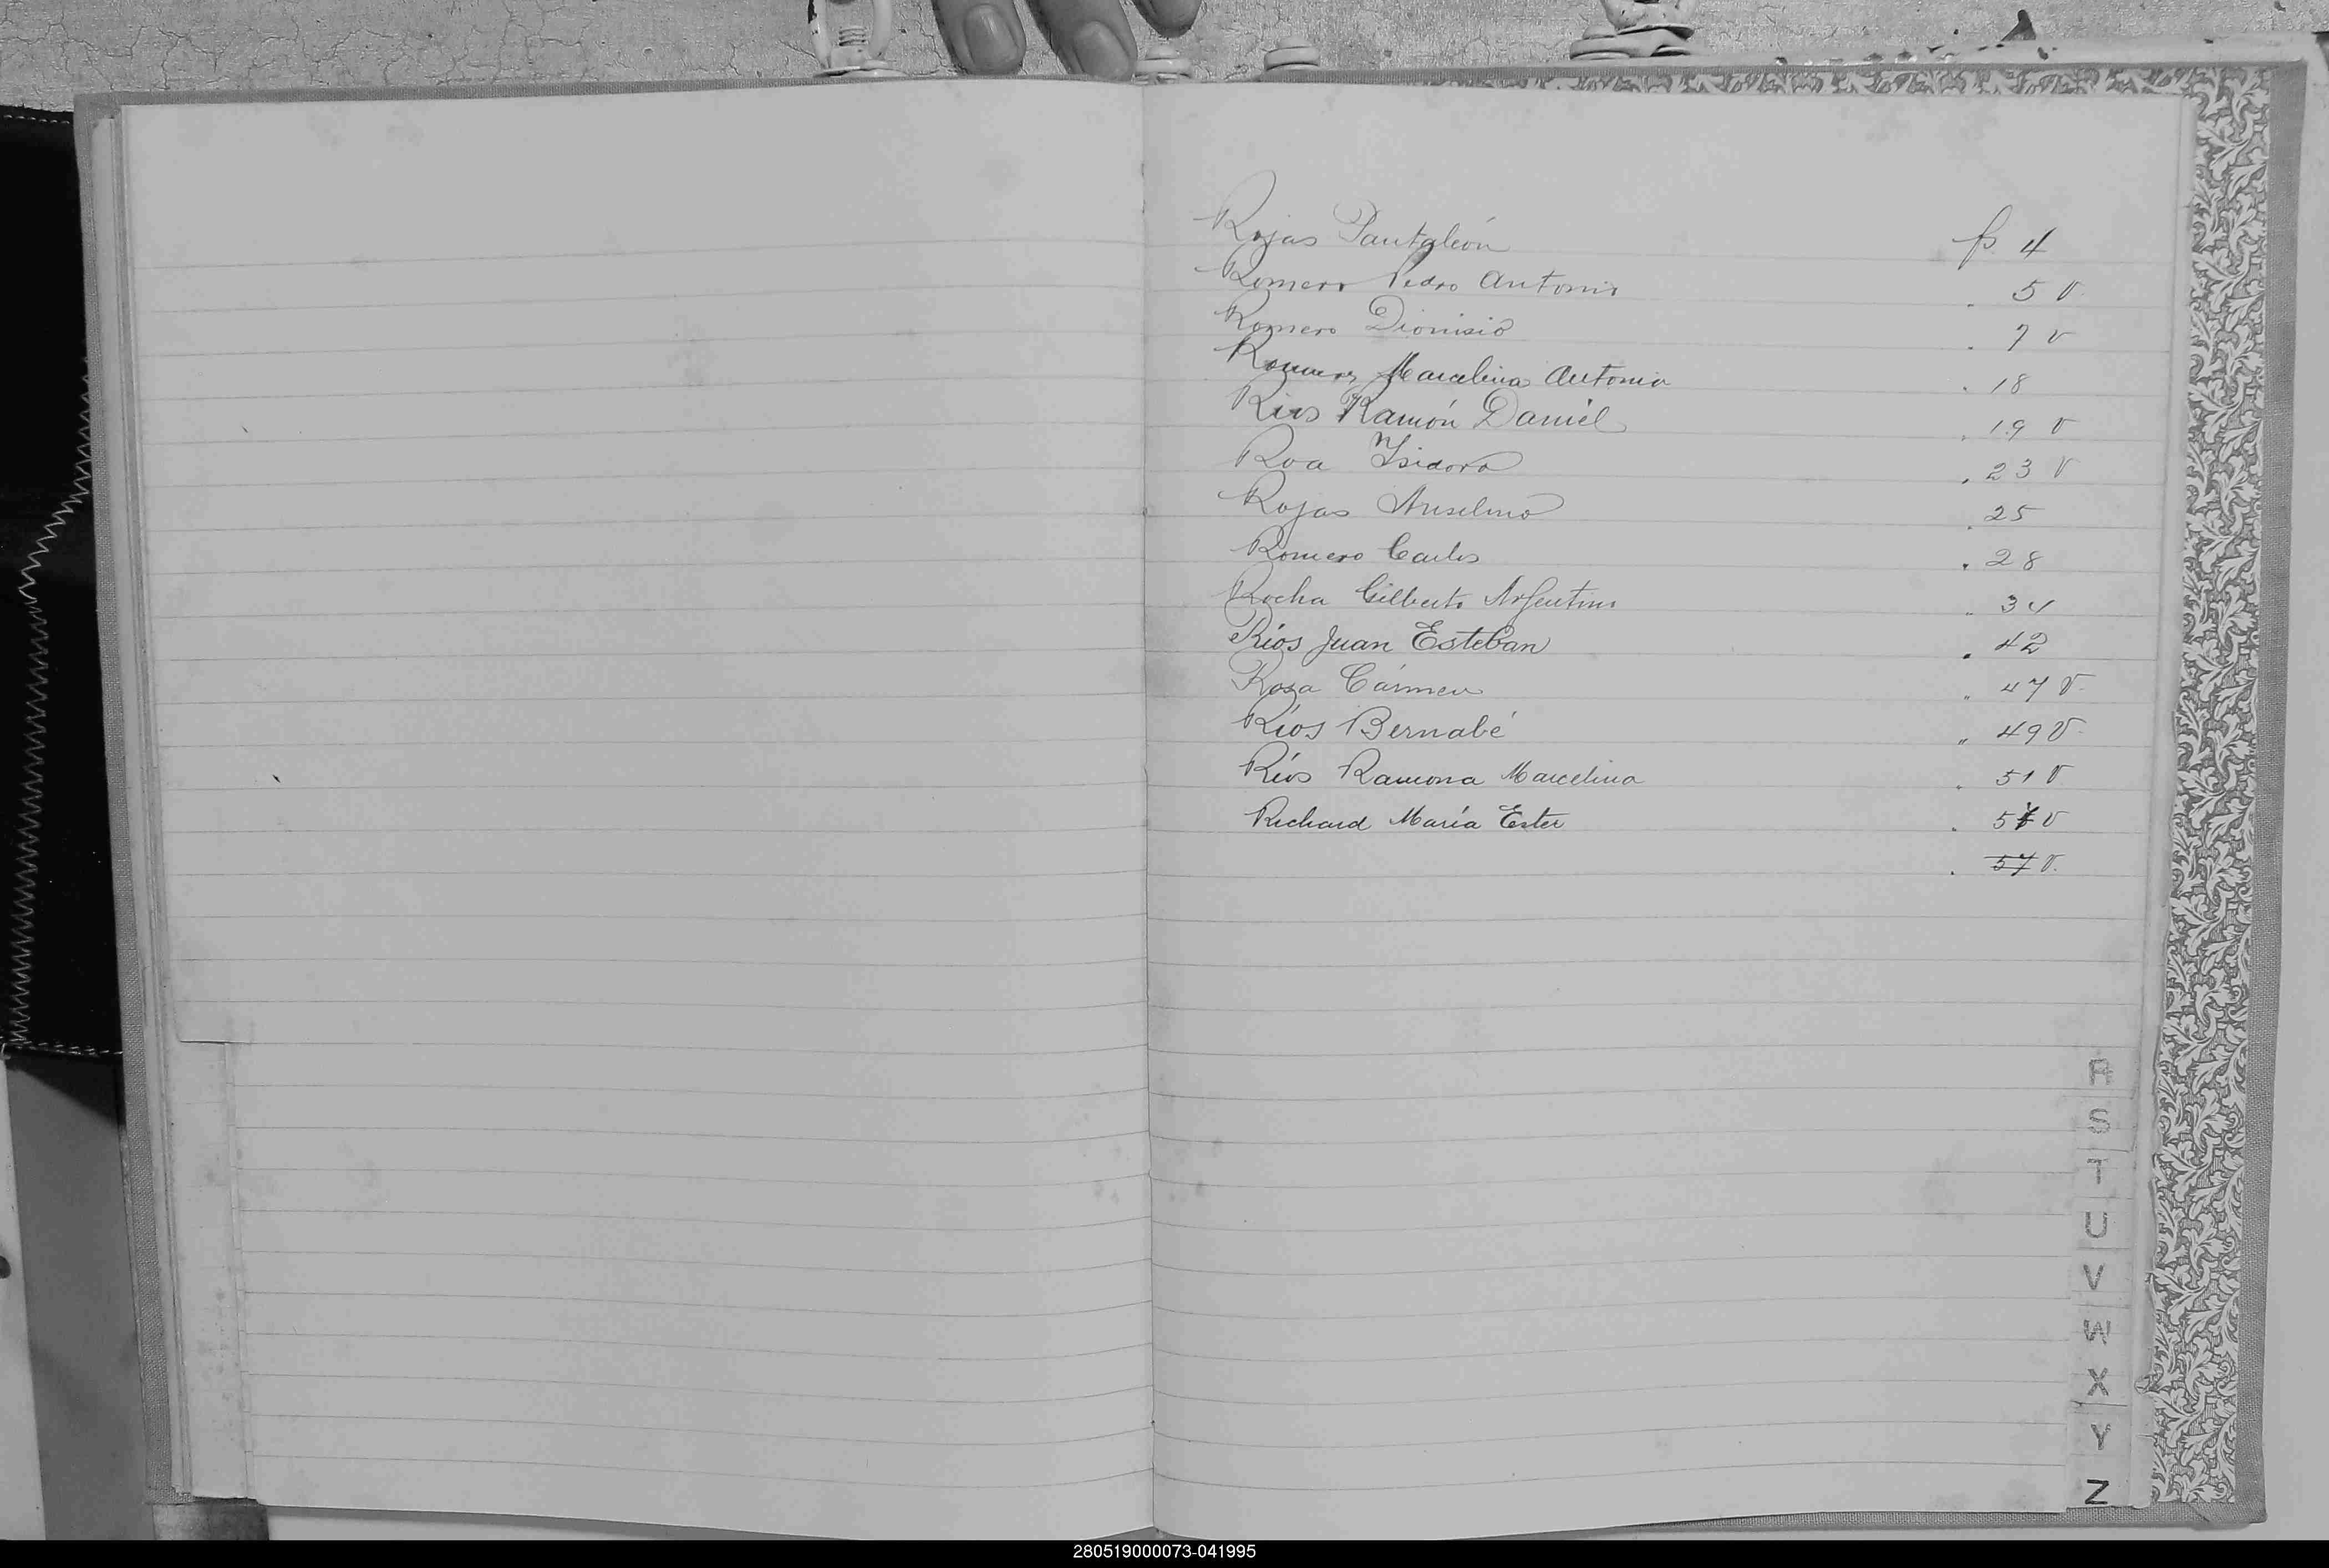 Rojas Pantaleón fs. 4
Romero Pedro Antonio . 5 v
Romero Dionisio . 7 v
Romero Marcelina Antonia . 18
Rios Ramón Daniel . 19 v
Roa Isidora . 23 v
Rojas Anselmo . 25
Romero Carlos . 28
Rocha Gilberto Argentino " 34
Ríos Juan Esteban . 42
Rosa Cármen " 47 v.
Ríos Bernabé " 49 v.
Ríos Ramona Marcelina " 51 v
Richard María Ester . v
. 57 v.
R
S
T
U
V
W
X
Y
Z
280519000073-041995